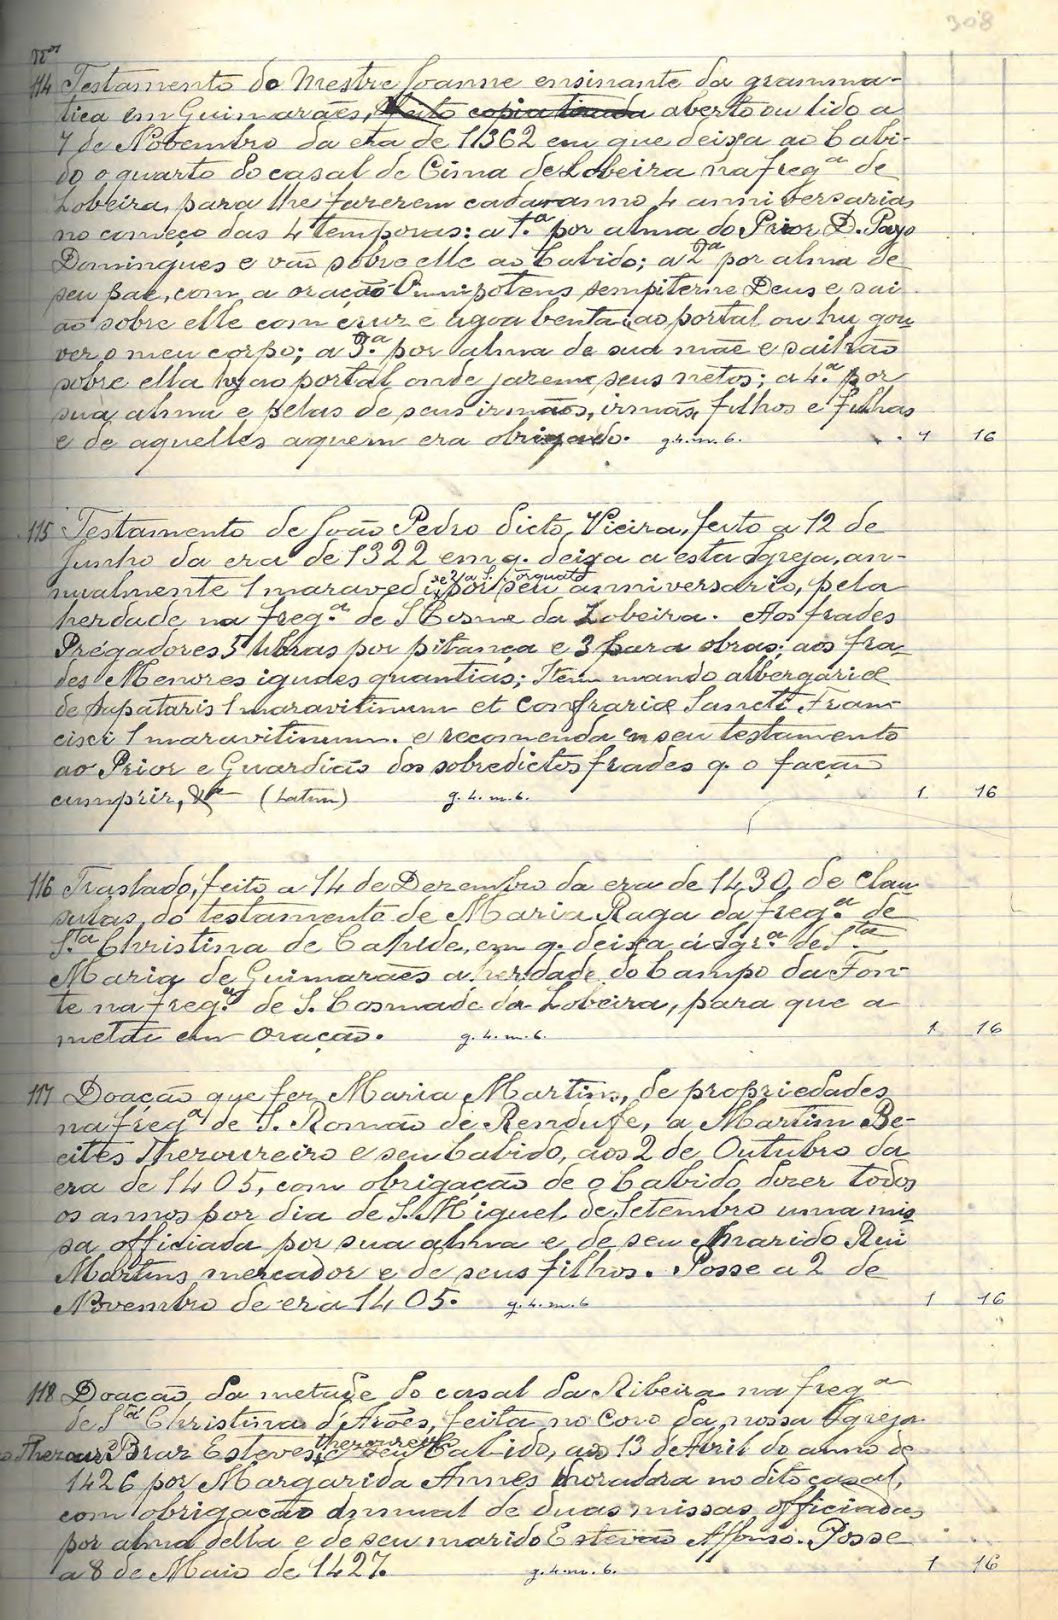 308
Nos
114 Testamento do Mestre Joanne ensinante da gramma-
tica em Guimarães, feito copia tirada aberto ou lido a
7 de Novembro da era de 1362 em que deixa ao Cabi-
do o quarto do casal de Cima de Lobeira na freg.ª de
Lobeira, para lhe fazerem cada anno 4 anniversarios
no começo das 4 temporas: a 1.ª por alma do Prior D. Payo
Domingues e vão sobre elle ao Cabido; a 2ª por alma de
seu pae, com a oração Omnipotens sempiterne Deus e sai-
ão sobre elle com cruz e agoa benta ao portal ou hu gou
ver o meu corpo; a 3.ª por alma de sua mãe e sairão
sobre ella ao portal onde jazem seus netos; a 4.ª por
sua alma e pelas de seus irmãos, irmãs, filhos e filhas
e de aquelles a quem era obrigado. g.4.m.6. 1 16
115 Testamento de João Pedro dicto Vieira, feito a 12 de
Junho da era de 1322 em q. deixa a esta Igreja, an-
nualmente 1 maravedi por seu anniversario, pela
herdade na freg.ª de S Cosme da Lobeira. Aos frades
Prégadores 5 libras por pitança e 3 para obras; aos fra-
des Menores iguaes quantias; Item mando albergariæ
de supataris 1 maravitinum et confrariæ Sancti Fran-
cisci 1 maravitinum. e recomenda em seu testamento
ao Prior e Guardião dos sobredictos frades q. o fação
cumprir, &ª (Latim) g.4.m.6. 1 16
116 Traslado, feito a 14 de Dezembro da era de 1430, de clau-
sulas do testamento de Maria Raga da freg.ª de
S.ta Christina de Cahide, em q. deixa á Igr.ª de S.ta
Maria de Guimarães a herdade do Campo da Fon-
te na freg.ª de S. Cosmade da Lobeira, para que a
metão em oração. g.4.m.6. 1 16
117 Doação que fez Maria Martins, de propriedades
na freg.ª de S. Romão de Rendufe, a Martim Be-
eites Thezoureiro e seu Cabido, aos 2 de Outubro da
era de 1405, com obrigação de o Cabido dizer todos
os annos por dia de S. Miguel de Setembro uma mis-
sa officiada por sua alma e de seu marido Rui
Martins mercador e de seus filhos. Posse a 2 de
Novembro de era 1405. g.4.m.6 1 16
118 Doação da metade do casal da Ribeira na freg.ª
de S.ta Christina d'Arões, feita no Coro da nossa Igreja
Braz Esteves, thezoureiro e seu Cabido, aos 13 d'Abril do anno de
1426 por Margarida Annes moradora no dito casal,
com obrigação annual de duas missas officiadas
por alma della e de seu marido Estevão Affonso. Posse
a 8 de Maio de 1427. g.4.m.6. 1 16